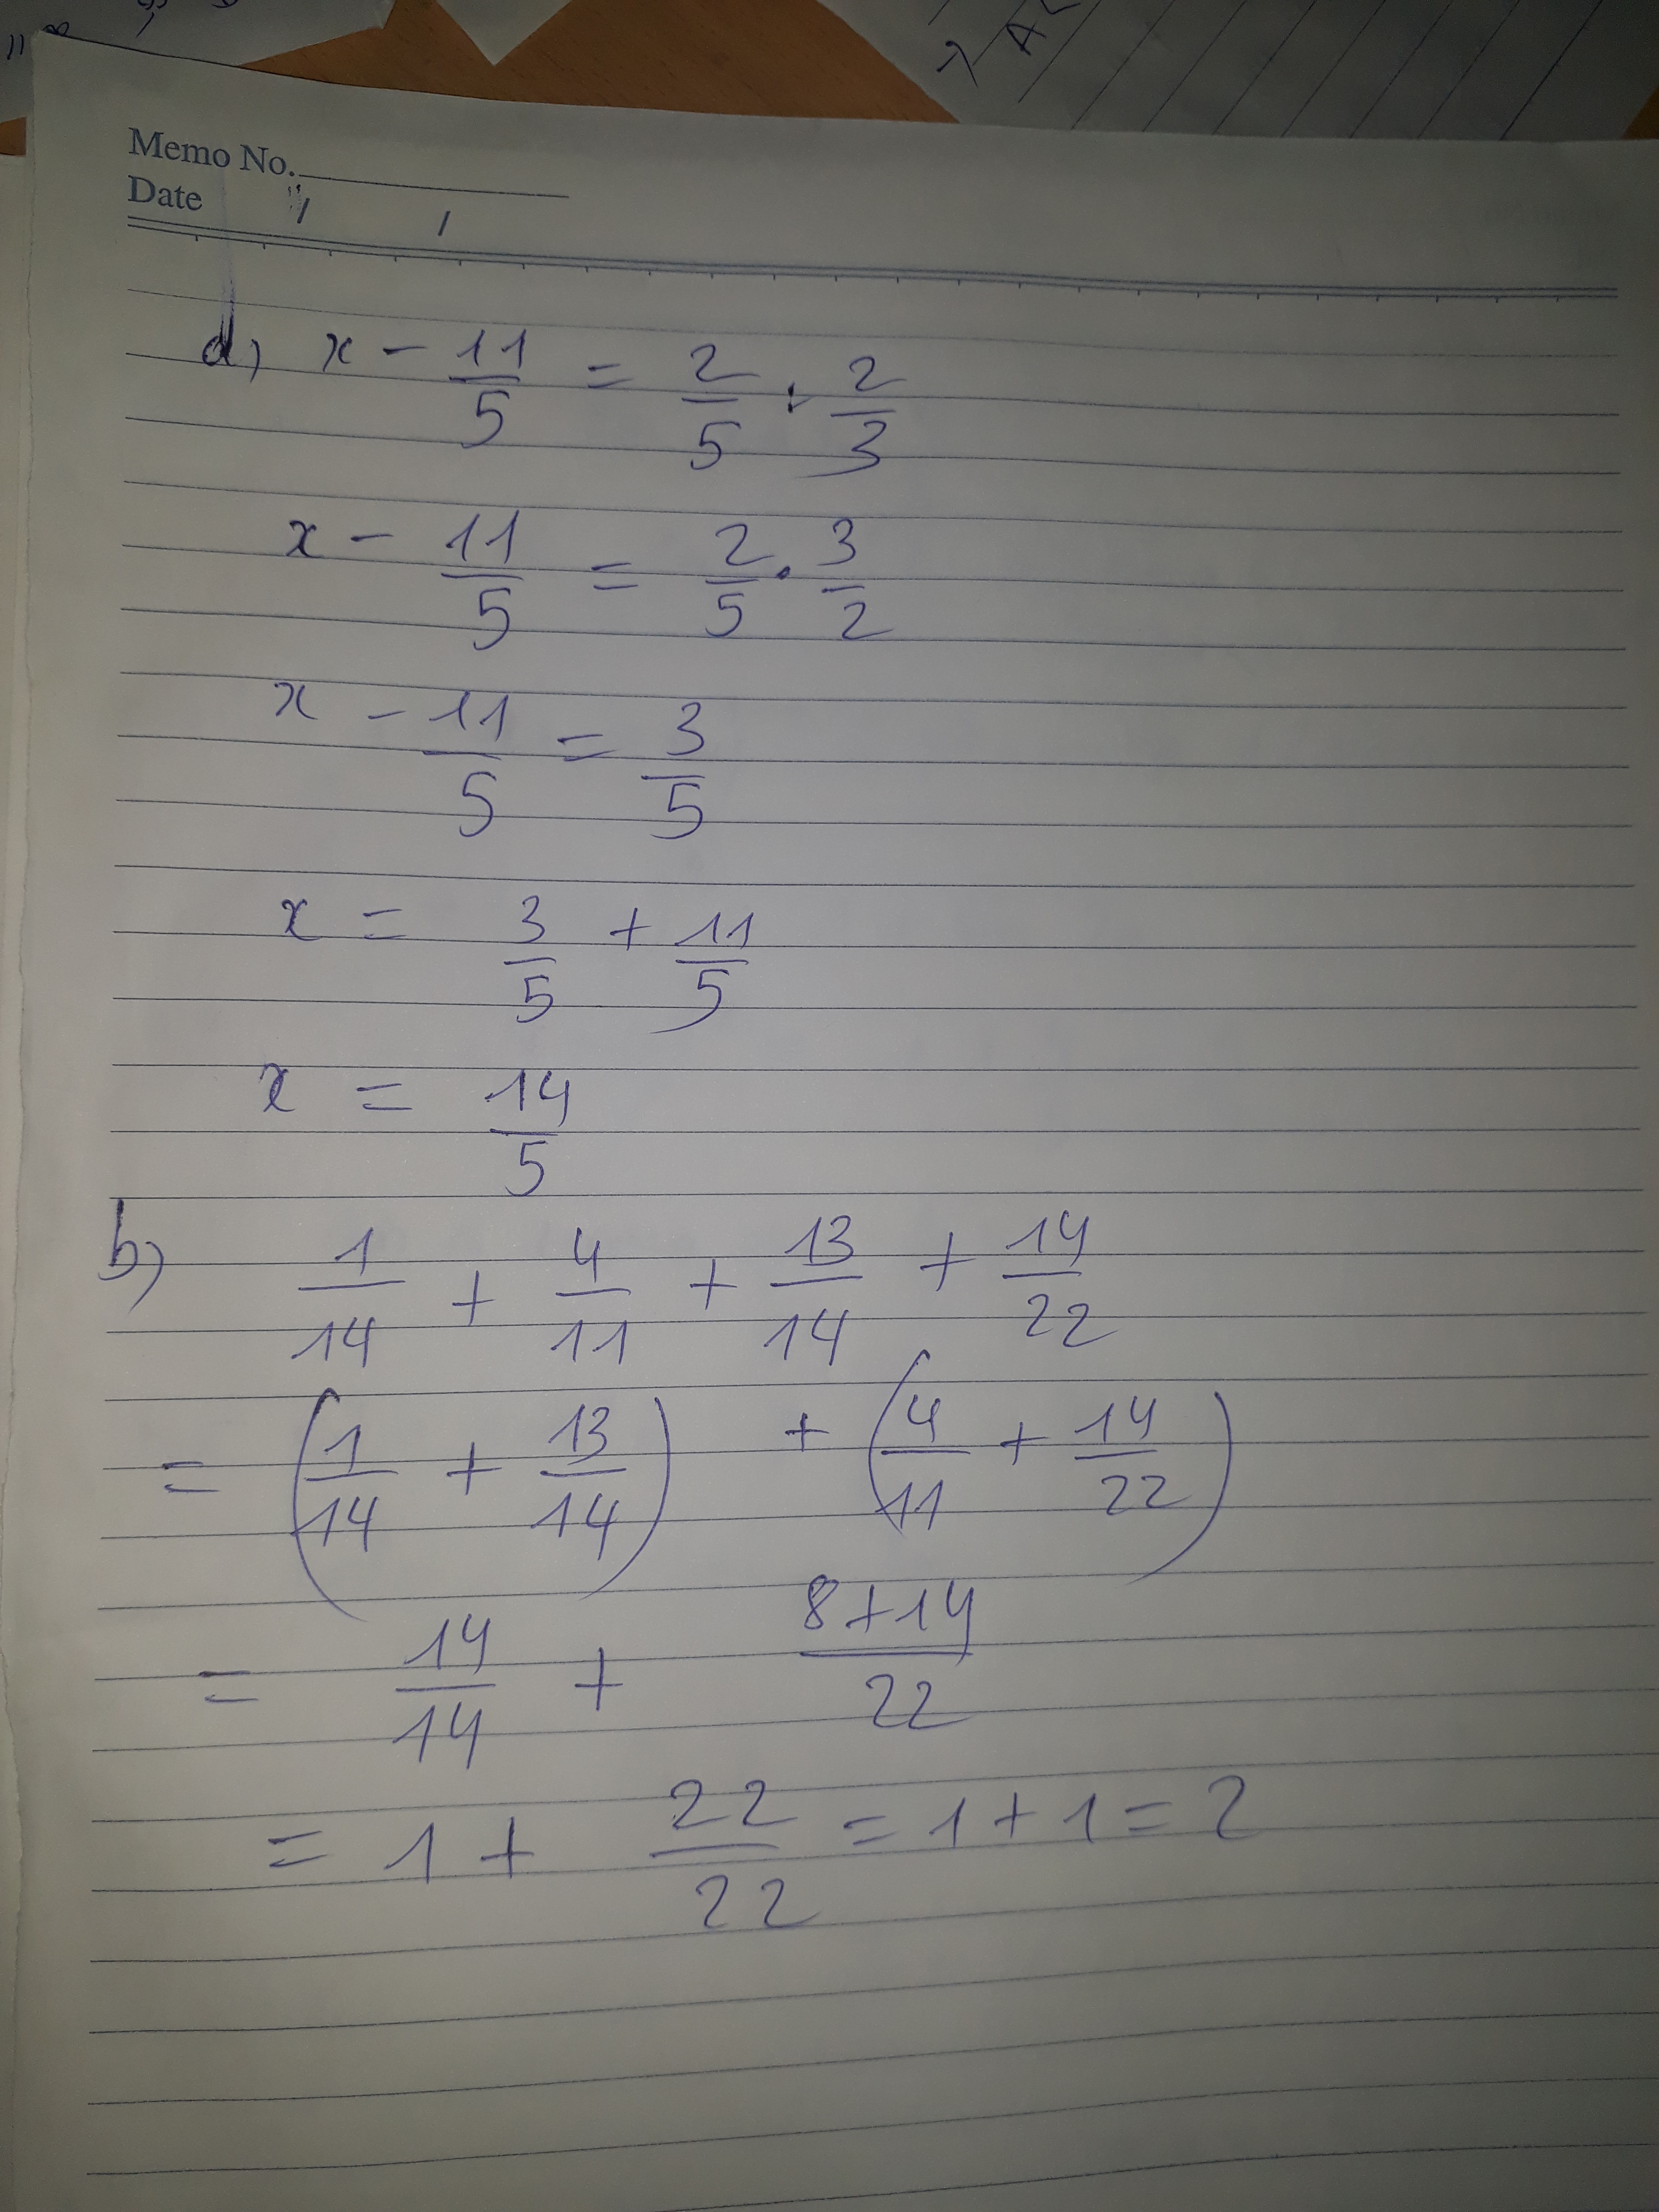 Memo No.
Date / /
d, x - 11/5 = 2/5 : 2/3
x - 11/5 = 2/5 . 3/2
x - 11/5 = 3/5
x = 3/5 + 11/5
x = 14/5
b, 1/14 + 4/11 + 13/14 + 14/22
= (1/14 + 13/14) + (4/11 + 14/22)
= 14/14 + (8+14)/22
= 1 + 22/22 = 1 + 1 = 2